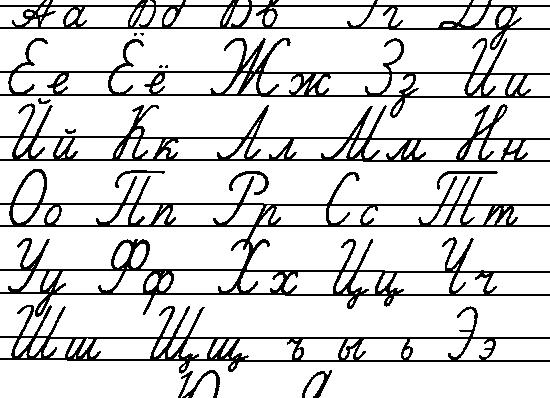 Аа Бб Вв Гг Дд
Ее Ёё Жж Зз Ии
Йй Кк Лл Мм Нн
Оо Пп Рр Сс Тт
Уу Фф Хх Цц Чч
Шш Щщ ъ ы ь Ээ
Ю Я